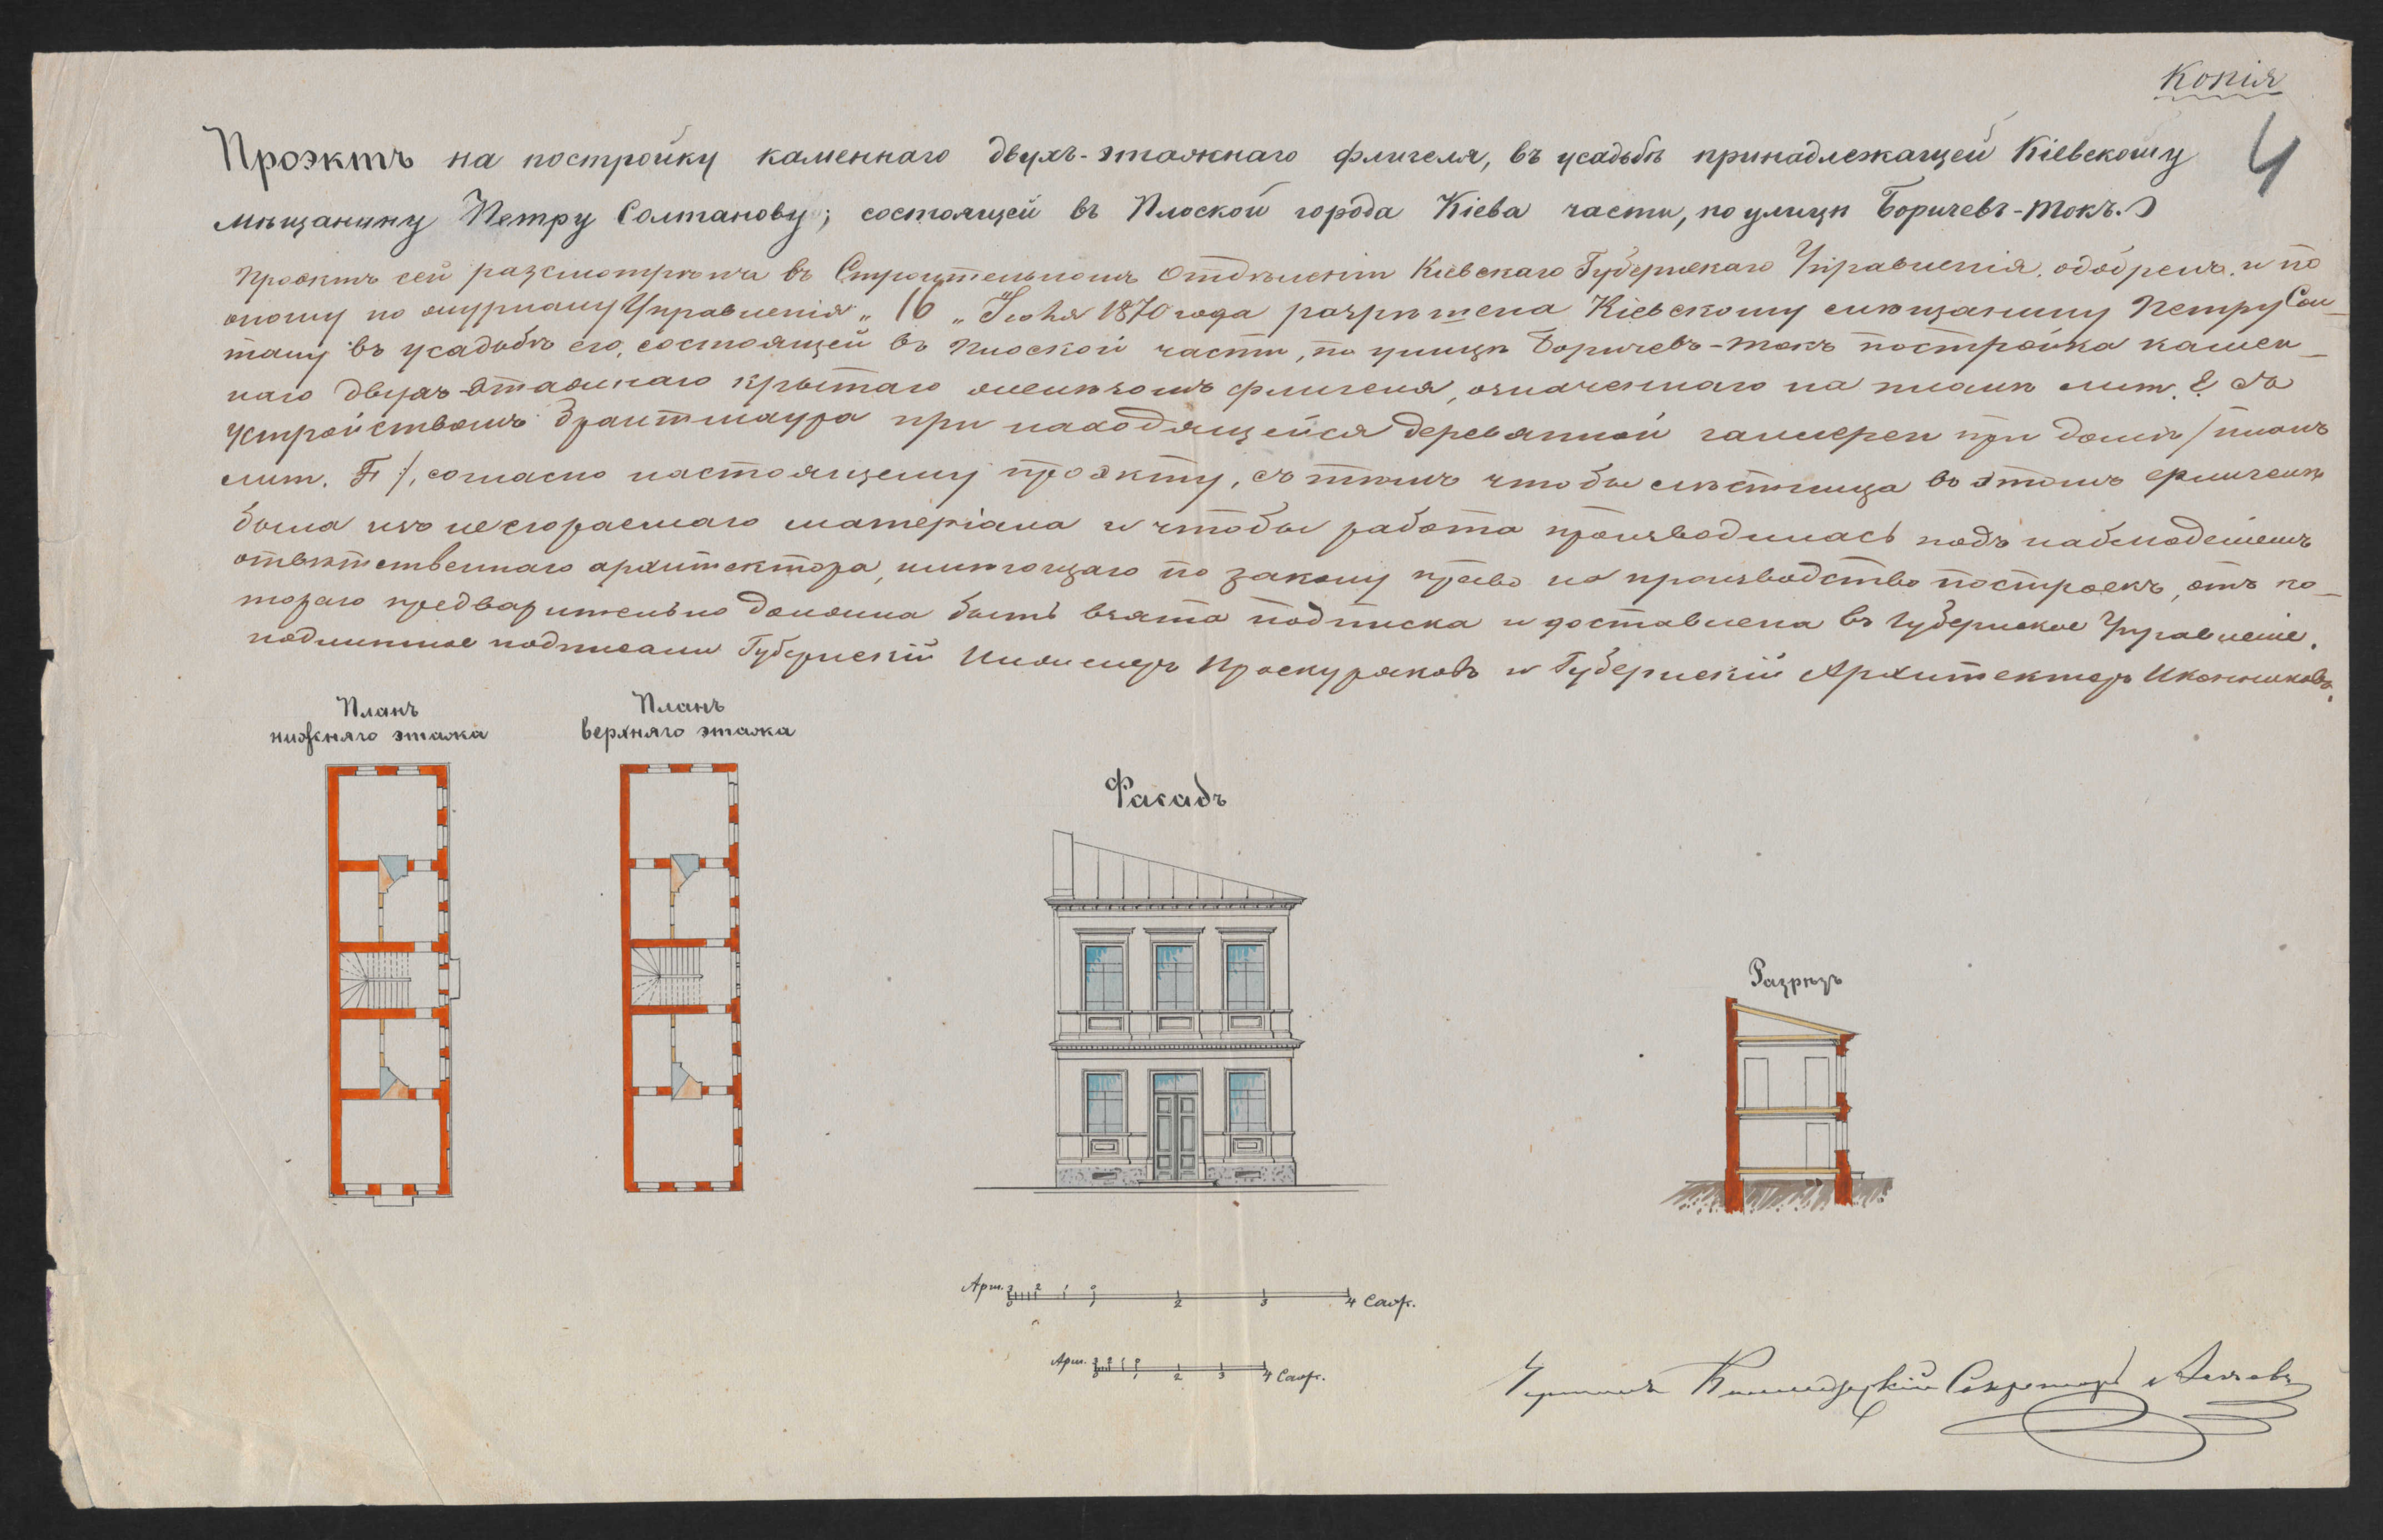 Копія
4
Проэктъ на постройку каменнаго двухъ-этажнаго флигеля, въ усадьбѣ принадлежащей Кіевскому
мѣщанину Петру Солтанову; состоящей въ Плоской города Кіева части, по улицѣ Боричевъ-Токъ.
Проэктъ сей разсмотрѣнъ въ Строительномъ Отдѣленіи Кіевскаго Губернскаго Управленія, одобренъ и по
оному по журналу Управленія „16„ Іюля 1870 года разрѣшена Кіевскому мѣщанину Петру Сол-
тану въ усадьбѣ его, состоящей въ Плоской части, по улицѣ Боричевъ-токъ постройка камен-
наго двухъ-этажнаго крытаго желѣзомъ флигеля, означеннаго на планѣ лит. Е съ
устройствомъ брантмаура при находящейся деревянной галлереи при домѣ /планъ
лит. F/, согласно настоящему проэкту, съ тѣмъ чтобы лѣстница въ этомъ флигелѣ
была изъ несгораемаго матеріала и чтобы работа производилась подъ наблюденіемъ
отвѣтственнаго архитектора, имѣющаго по закону право на производство построекъ, отъ ко-
тораго предварительно должна быть взята подписка и доставлена въ Губернское Управленіе.
Подлинное подписали Губернскій Инженеръ Проскуряковъ и Губернскій Архитекторъ Иконниковъ.
Планъ
нижняго этажа
Планъ
верхняго этажа
Фасадъ
Разрѣзъ
Арш. 3 2 1 0
0 1 2 3 4 Саж.
Арш. 3 2 1 0
0 1 2 3 4 Саж.
Секретарь